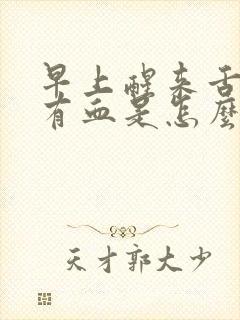 早上醒来舌
有血是怎麼
天才郭大少